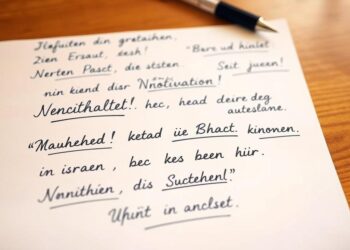 Ilefuiten din gretaihen,
Zien Ersaut, eesh! "Bare ud hinlet
Nerten Pasct, die ststen Seit jueen!
nin kiend disr Nnotivation!
Nencithaltet!. hec, head deire deg
auteslane.
"Mauhehed! ketad üe Bhact. kinonen.
in israen, bec kes been hür.
Nnnithien, dis Suctehenl!"
Uhint in anclset.